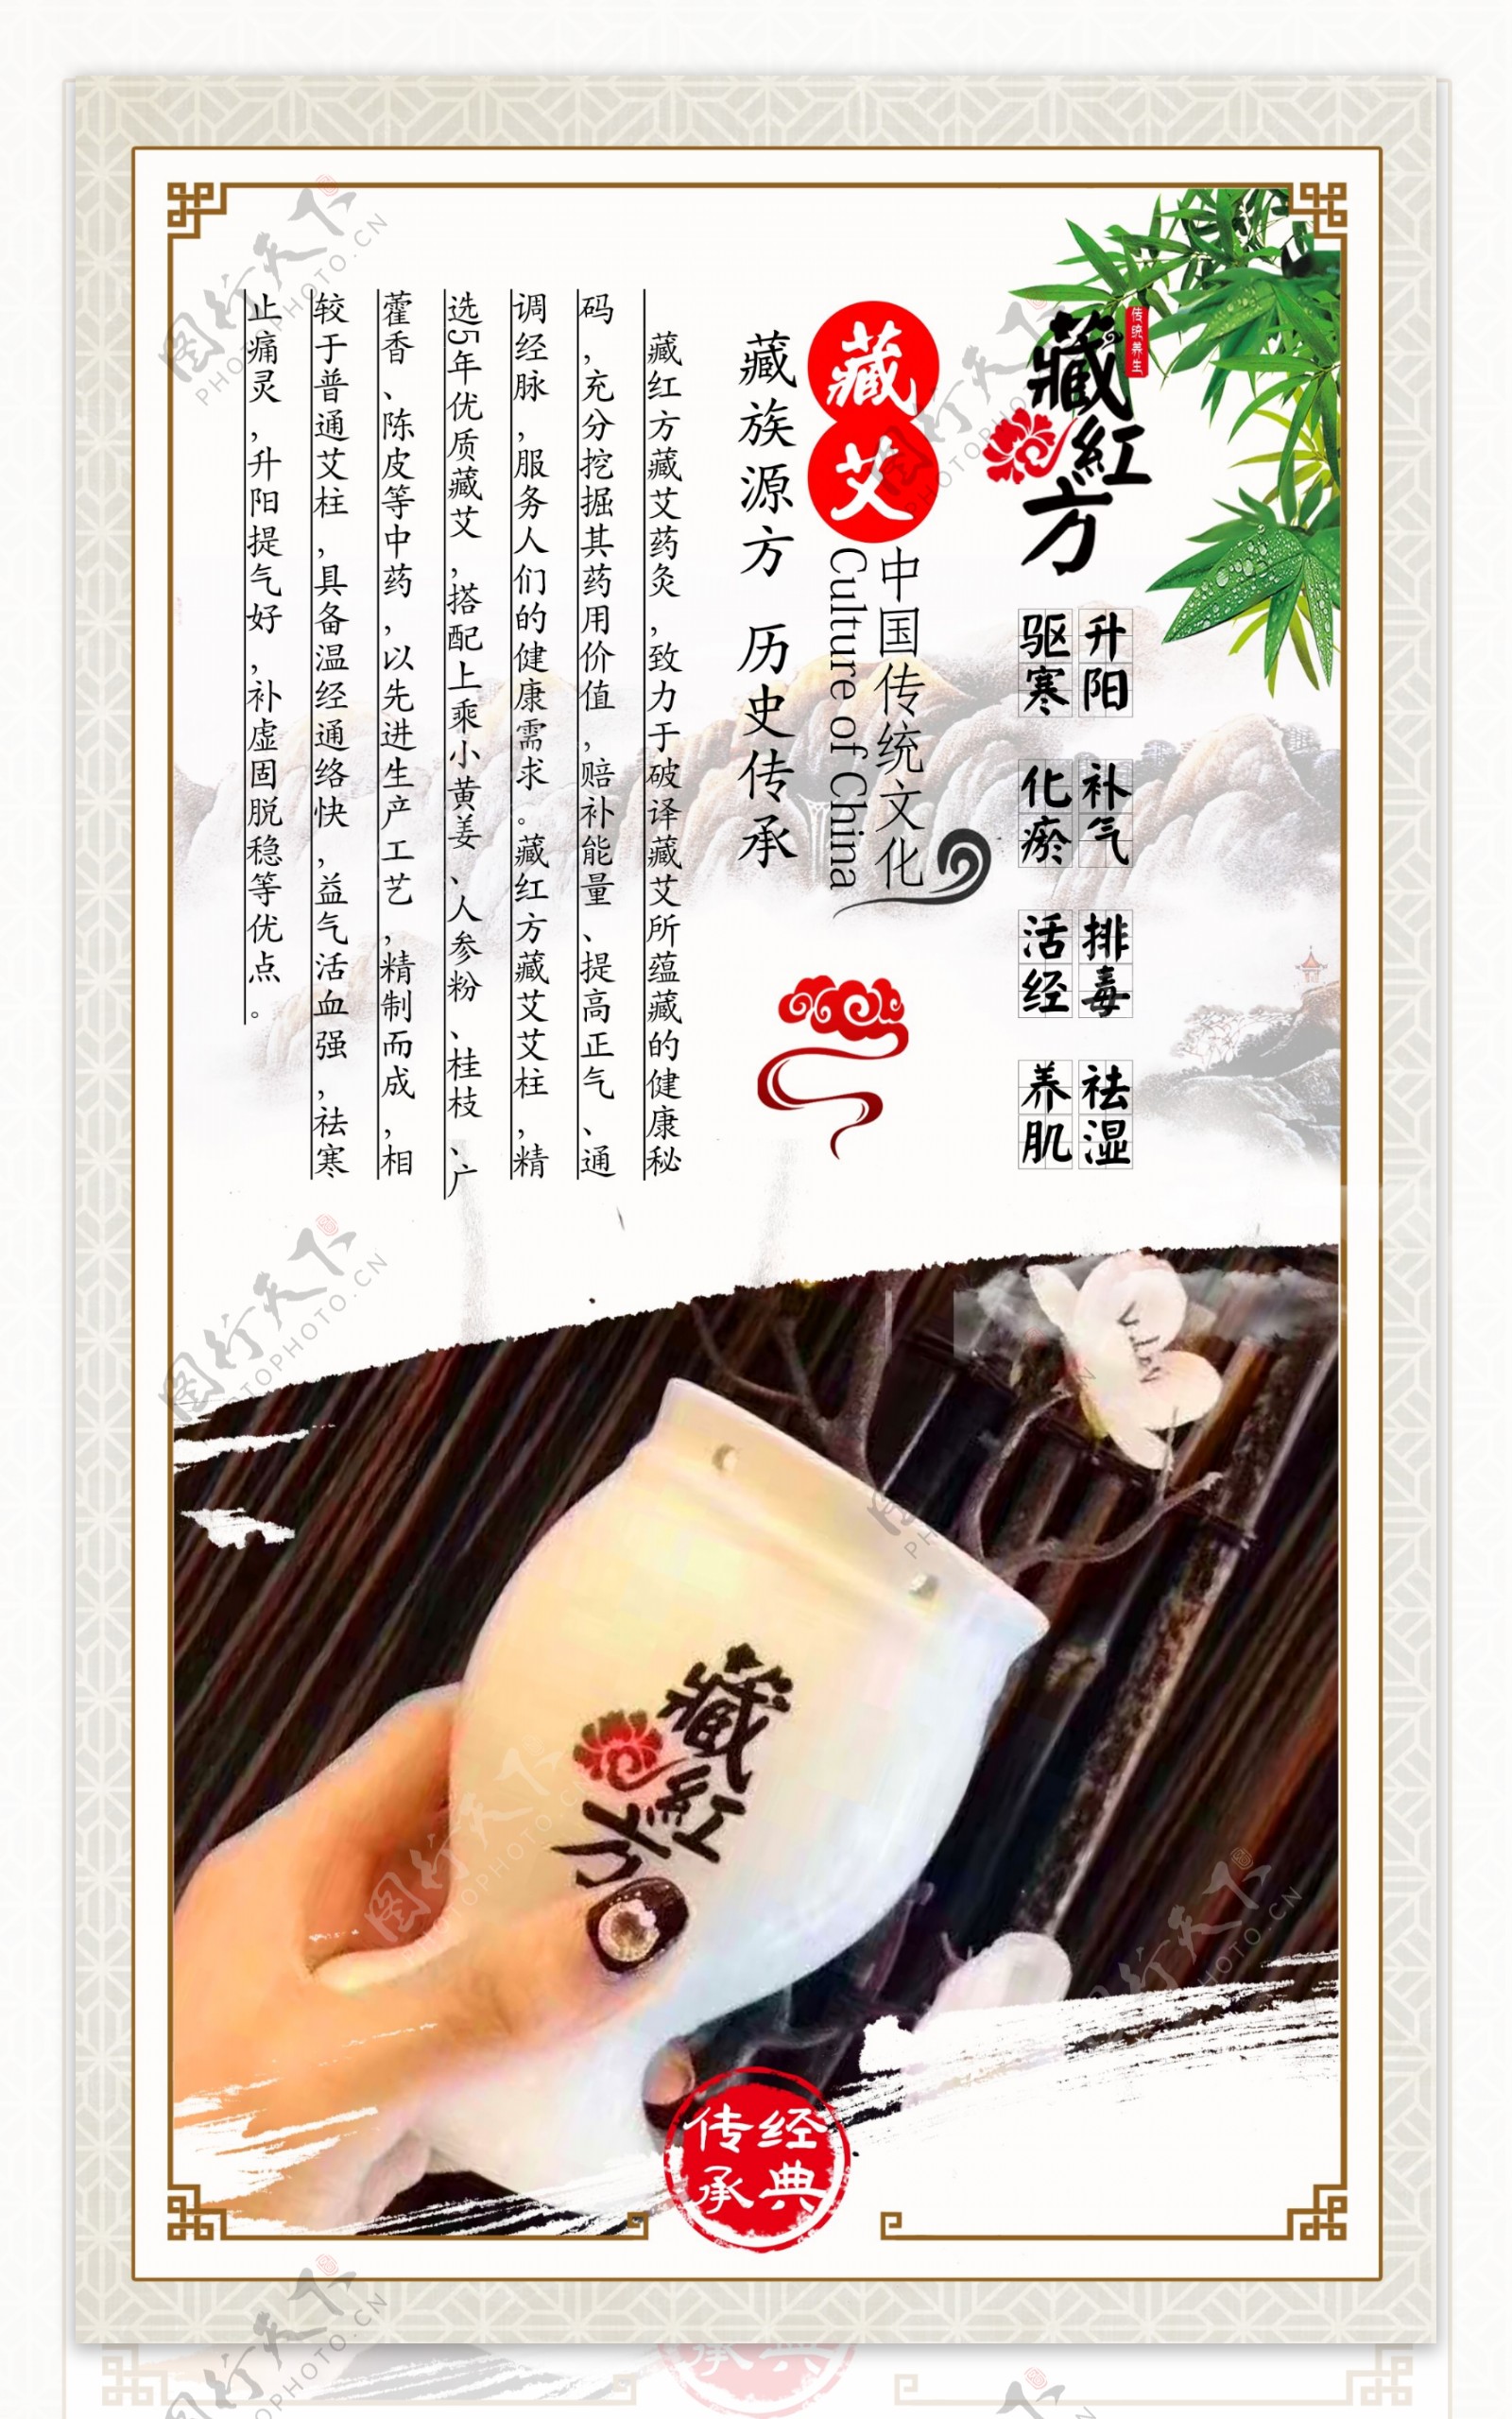 藏红方
传统养生
升阳 补气 排毒 祛湿
驱寒 化瘀 活经 养肌
藏艾
中国传统文化
Culture of China
藏族源方 历史传承
藏红方藏艾药灸，致力于破译藏艾所蕴藏的健康秘
码，充分挖掘其药用价值，赔补能量、提高正气、通
调经脉，服务人们的健康需求。藏红方藏艾艾柱，精
选5年优质藏艾，搭配上乘小黄姜、人参粉、桂枝、广
藿香、陈皮等中药，以先进生产工艺，精制而成，相
较于普通艾柱，具备温经通络快，益气活血强，祛寒
止痛灵，升阳提气好，补虚固脱稳等优点。
藏红方
经典
传承
图行天下
PHOTOPHOTO.CN